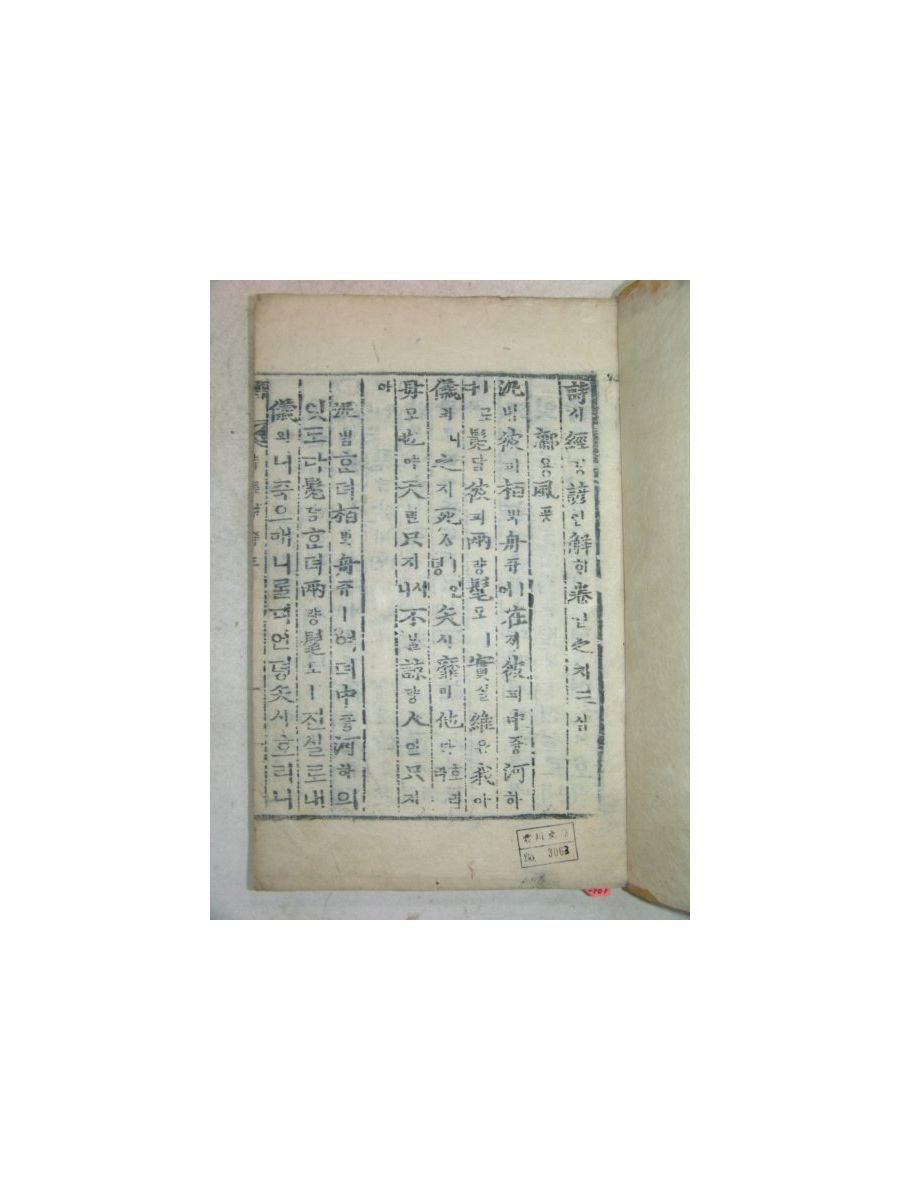 詩시經경諺언解ᄒᆡ卷권之지三삼
鄘용風풍
汎범彼피柏ᄇᆡᆨ舟쥬ㅣ여在ᄌᆡ彼피中듕河하
ㅣ로다髧담彼피兩량髦모ㅣ實실維유我아
儀의니之지死ᄉᆞ언뎡矢시靡미他타호리라
母모也야天텬只지시니不불諒량人인只지
아
汎범ᄒᆞᆫ뎌柏ᄇᆡᆨ舟쥬ㅣ여뎌中듕河하의
잇도다髧담ᄒᆞᆫ뎌兩량髦모ㅣ진실로내
儀의니죽으매니를디언뎡矢시호리니
No. 3063